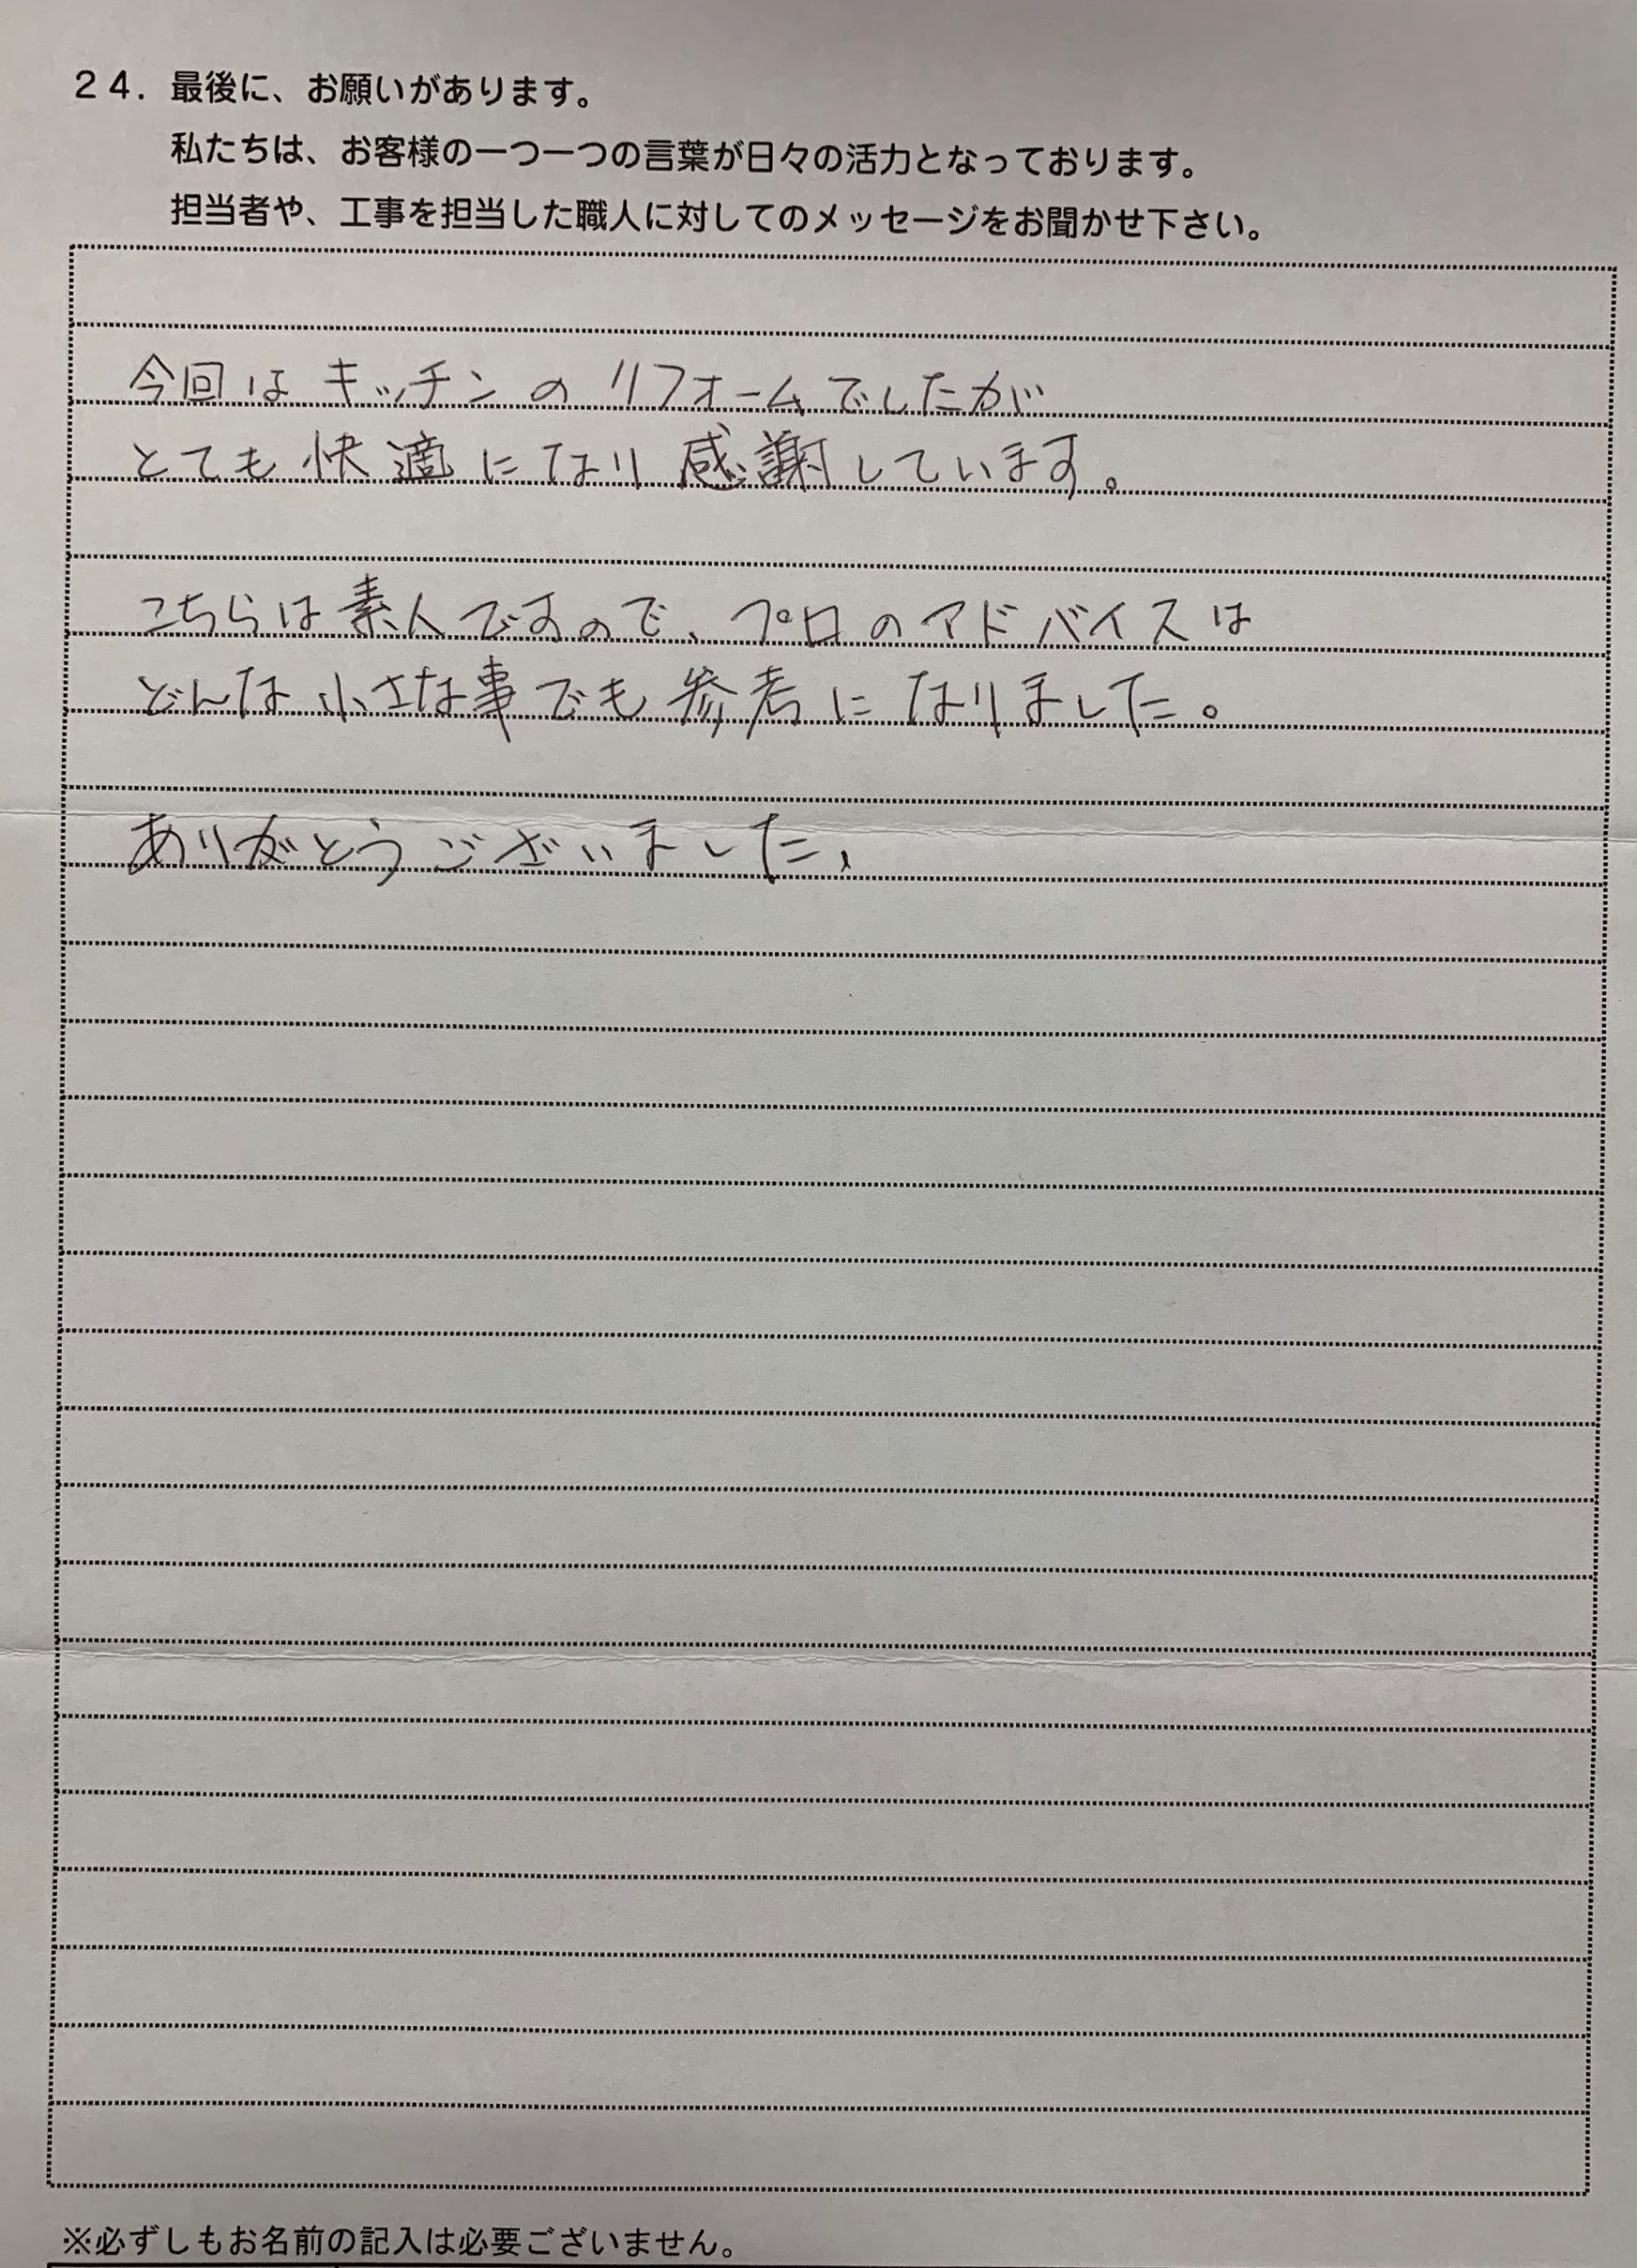 ２４．最後に、お願いがあります。
私たちは、お客様の一つ一つの言葉が日々の活力となっております。
担当者や、工事を担当した職人に対してのメッセージをお聞かせ下さい。
今回はキッチンのリフォームでしたが
とても快適になり感謝しています。
こちらは素人ですので、プロのアドバイスは
どんな小さな事でも参考になりました。
ありがとうございました、
※必ずしもお名前の記入は必要ございません。